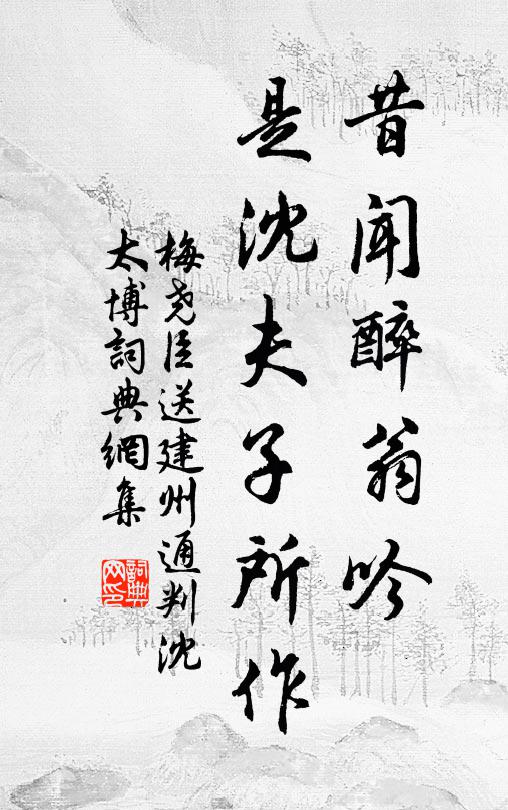 昔聞醉翁吟
是沈夫子所作
梅堯臣送建州通判沈
太博詞典網集
詞典網印